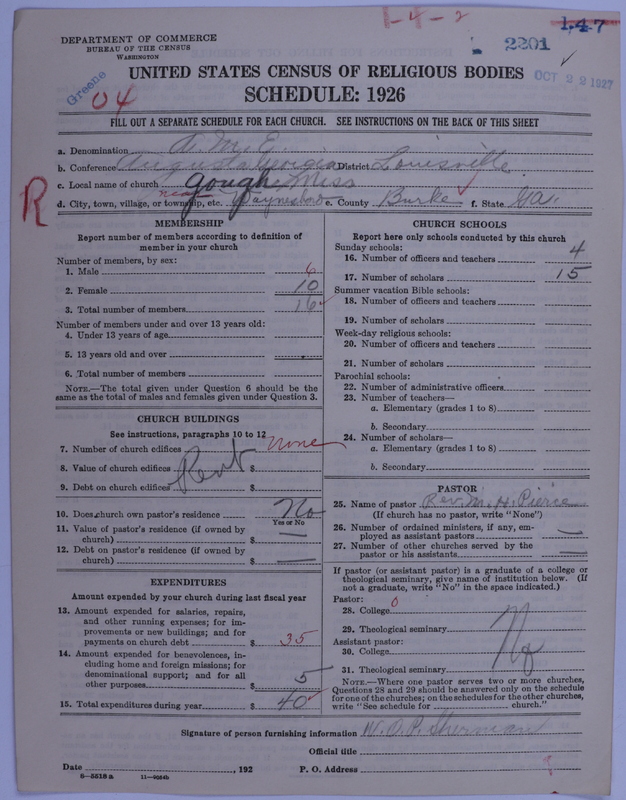 1-4-2
147
DEPARTMENT OF COMMERCE
BUREAU OF THE CENSUS
WASHINGTON
2201
OCT 22 1927
Greene
04
UNITED STATES CENSUS OF RELIGIOUS BODIES
SCHEDULE: 1926
FILL OUT A SEPARATE SCHEDULE FOR EACH CHURCH. SEE INSTRUCTIONS ON THE BACK OF THIS SHEET
a. Denomination A. M. E.
b. Conference Augusta Georgia District Louisville
c. Local name of church Gough Miss
R
d. City, town, village, or township, etc. near Waynesboro e. County Burke f. State Ga.
MEMBERSHIP
Report number of members according to definition of
member in your church
Number of members, by sex:
1. Male 6
2. Female 10
3. Total number of members 16
Number of members under and over 13 years old:
4. Under 13 years of age
5. 13 years old and over
6. Total number of members
NOTE.—The total given under Question 6 should be the
same as the total of males and females given under Question 3.
CHURCH BUILDINGS
See instructions, paragraphs 10 to 12
7. Number of church edifices none
8. Value of church edifices $ Rent
9. Debt on church edifices $
10. Does church own pastor's residence No
Yes or No
11. Value of pastor's residence (if owned by
church) $ —
12. Debt on pastor's residence (if owned by
church) $ —
EXPENDITURES
Amount expended by your church during last fiscal year
13. Amount expended for salaries, repairs,
and other running expenses; for im-
provements or new buildings; and for
payments on church debt $ 35
14. Amount expended for benevolences, in-
cluding home and foreign missions; for
denominational support; and for all
other purposes $ 5
15. Total expenditures during year $ 40
CHURCH SCHOOLS
Report here only schools conducted by this church
Sunday schools:
16. Number of officers and teachers 4
17. Number of scholars 15
Summer vacation Bible schools:
18. Number of officers and teachers
19. Number of scholars
Week-day religious schools:
20. Number of officers and teachers
21. Number of scholars
Parochial schools:
22. Number of administrative officers
23. Number of teachers—
a. Elementary (grades 1 to 8)
b. Secondary
24. Number of scholars—
a. Elementary (grades 1 to 8)
b. Secondary
PASTOR
25. Name of pastor Rev. M. H. Pierce
(If church has no pastor, write "None")
26. Number of ordained ministers, if any, em-
ployed as assistant pastors —
27. Number of other churches served by the
pastor or his assistants —
If pastor (or assistant pastor) is a graduate of a college or
theological seminary, give name of institution below. (If
not a graduate, write "No" in the space indicated.)
Pastor: 0
28. College
29. Theological seminary No
Assistant pastor:
30. College
31. Theological seminary
NOTE.—Where one pastor serves two or more churches,
Questions 28 and 29 should be answered only on the schedule
for one of the churches; on the schedules for the other churches,
write "See schedule for church."
Signature of person furnishing information W. O. P. Sherman
Official title
Date , 192 P. O. Address
8—5518a 11—9084b